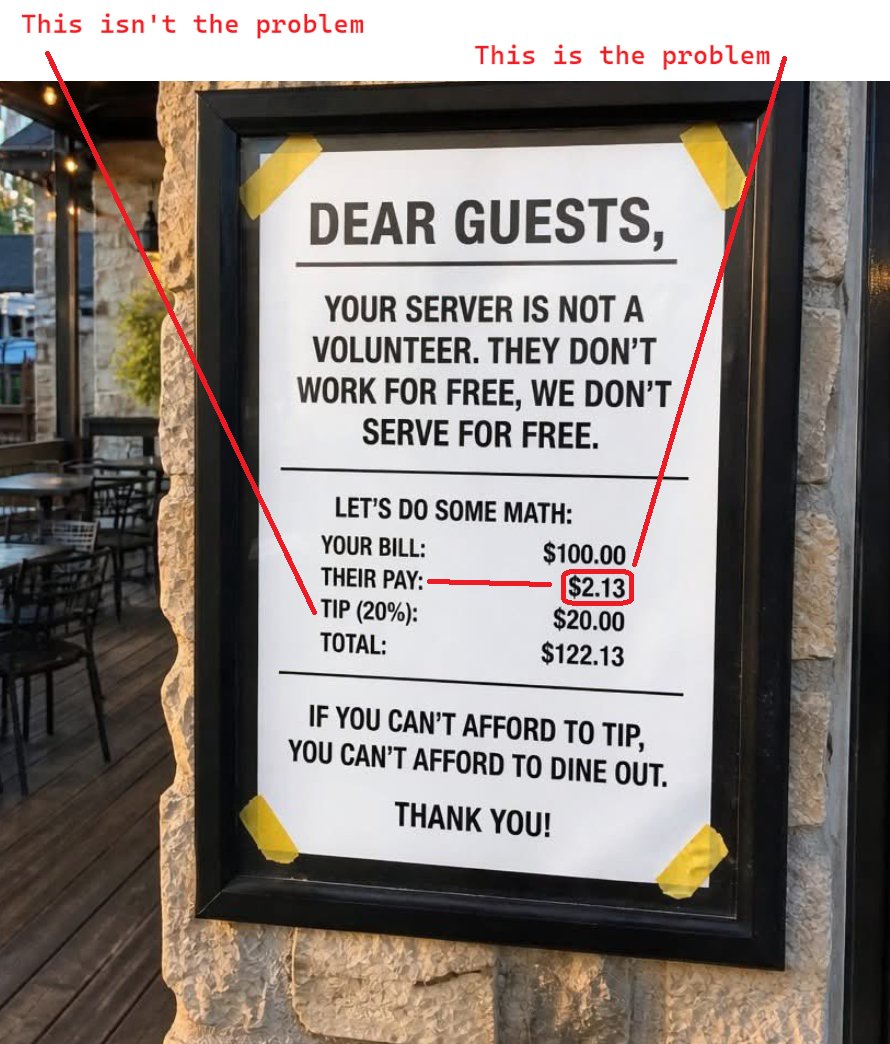 This isn't the problem
This is the problem
DEAR GUESTS,
YOUR SERVER IS NOT A
VOLUNTEER. THEY DON'T
WORK FOR FREE, WE DON'T
SERVE FOR FREE.
LET'S DO SOME MATH:
YOUR BILL: $100.00
THEIR PAY: $2.13
TIP (20%): $20.00
TOTAL: $122.13
IF YOU CAN'T AFFORD TO TIP,
YOU CAN'T AFFORD TO DINE OUT.
THANK YOU!